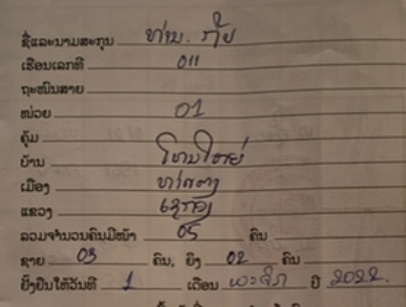 ຊື່ແລະນາມສະກຸນ ທ່ານ. ກ້ຽ
ເຮືອນເລກທີ 011
ຖະໜົນສາຍ
ໜ່ວຍ 01
ຄຸ້ມ
ບ້ານ ໂພນໃຫຍ່
ເມືອງ
ແຂວງ ເຊກອງ
ລວມຈຳນວນຄົນມີໜ້າ 05 ຄົນ
ຊາຍ 03 ຄົນ, ຍິງ 02 ຄົນ
ຢັ້ງຢືນໃຫ້ວັນທີ 1 ເດືອນ ປີ 2022.